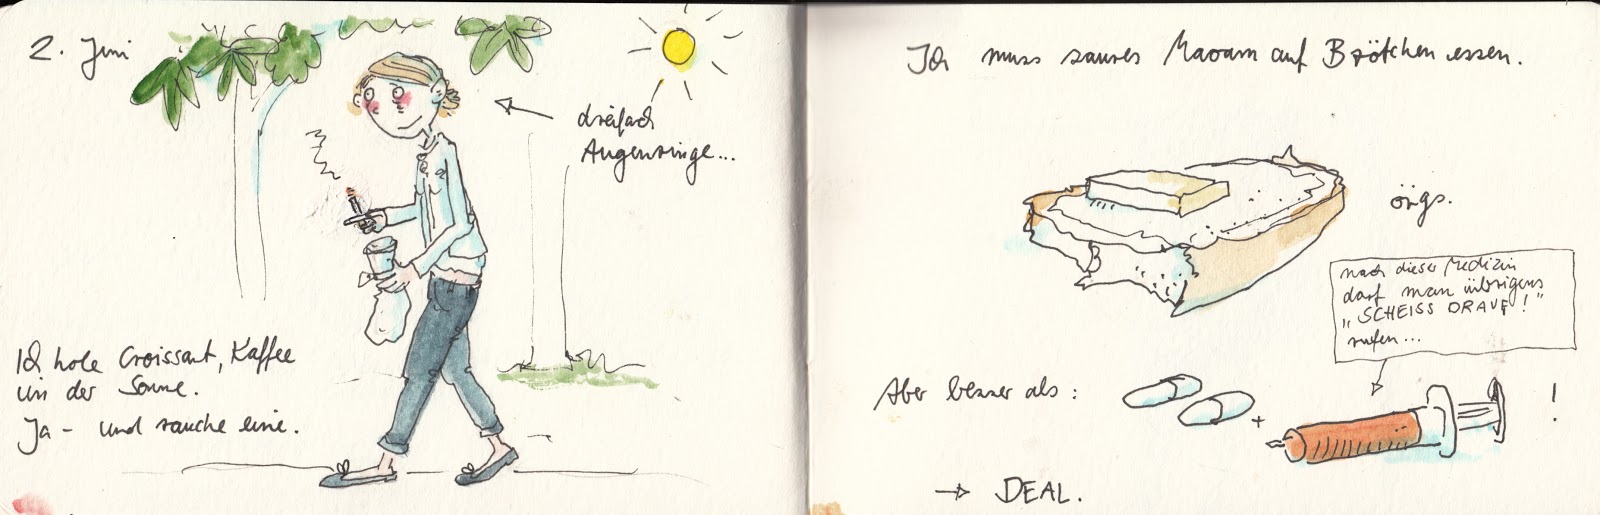 2. Juni
dreifach
Augenringe...
Ich hole Croissant, Kaffee
in der Sonne.
Ja - und rauche eine.
Ich muss saures Maoam auf Brötchen essen.
örgs.
nach dieser Medizin
darf man übrigens
„SCHEISS DRAUF!"
rufen...
Aber besser als:
+
!
→ DEAL.